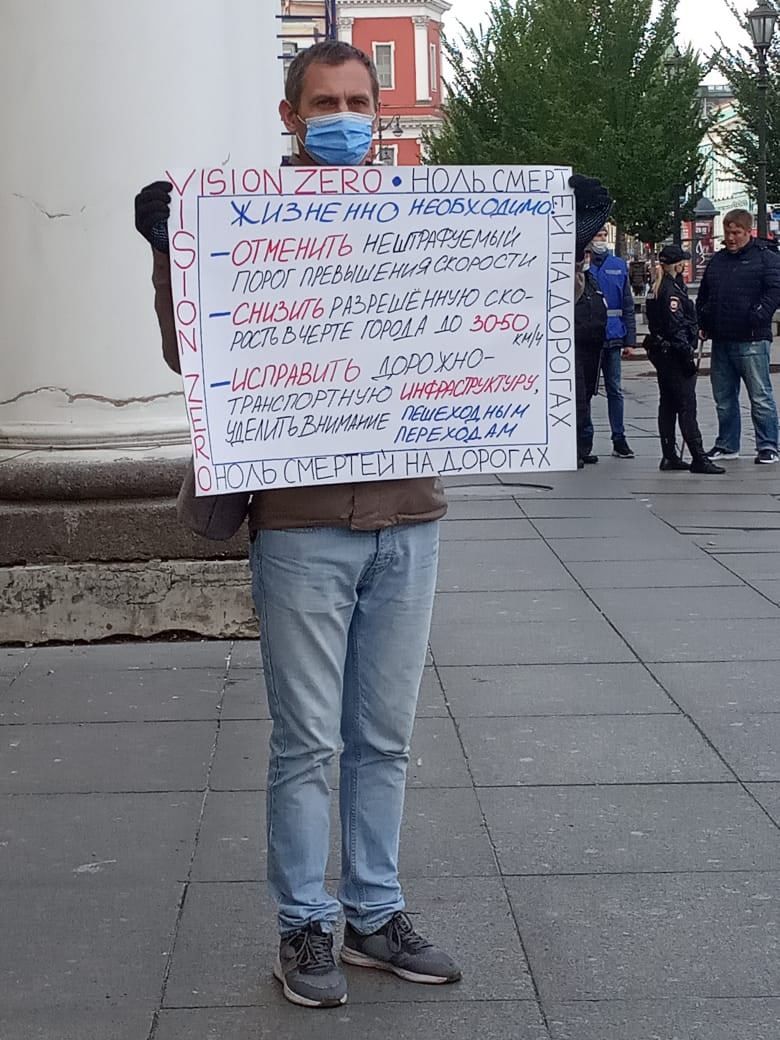 VISION ZERO • НОЛЬ СМЕРТЕЙ НА ДОРОГАХ
VISION ZERO
ЖИЗНЕННО НЕОБХОДИМО:
– ОТМЕНИТЬ НЕШТРАФУЕМЫЙ
ПОРОГ ПРЕВЫШЕНИЯ СКОРОСТИ
– СНИЗИТЬ РАЗРЕШЁННУЮ СКО-
РОСТЬ В ЧЕРТЕ ГОРОДА ДО 30-50
КМ/Ч
– ИСПРАВИТЬ ДОРОЖНО-
ТРАНСПОРТНУЮ ИНФРАСТРУКТУРУ,
УДЕЛИТЬ ВНИМАНИЕ ПЕШЕХОДНЫМ
ПЕРЕХОДАМ
НОЛЬ СМЕРТЕЙ НА ДОРОГАХ